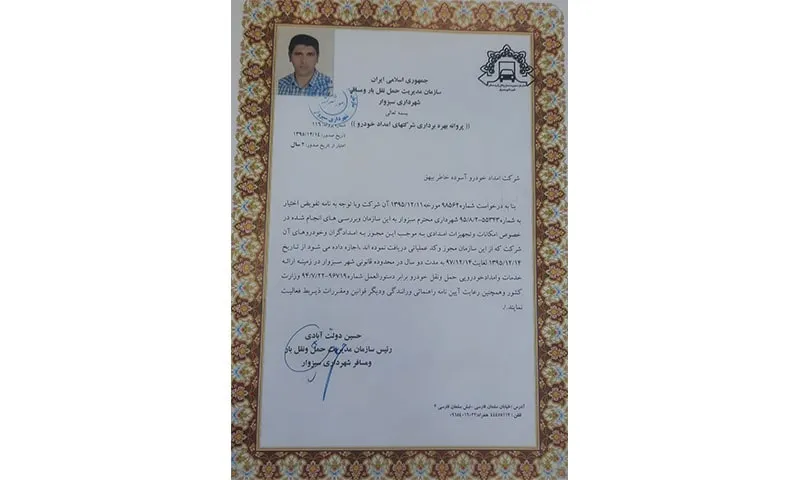 جمهوری اسلامی ایران
سازمان مدیریت حمل نقل بار ومسافر
شهرداری سبزوار
بسمه تعالی
(( پروانه بهره برداری شرکتهای امداد خودرو ))
شماره پروانه: ۱۱۹
تاریخ صدور: ۱۳۹۵/۱۲/۱۴
اعتبار از تاریخ صدور: ۲ سال
شرکت امداد خودرو آسوده خاطر بیهق
بنا به درخواست شماره ۹۸۵۶۴ مورخه ۱۳۹۵/۱۲/۱۱ آن شرکت وبا توجه به نامه تفویض اختیار
به شماره ۵۵۳۴۳-۹۵/۸/۲ شهرداری محترم سبزوار به این سازمان وبررسی های انجام شده در
خصوص امکانات وتجهیزات امدادی به موجب این مجوز به امدادگران وخودروهای آن
شرکت که از این سازمان مجوز وکد عملیاتی دریافت نموده اند ،اجازه داده می شود از تاریخ
۱۳۹۵/۱۲/۱۴ لغایت ۹۷/۱۲/۱۴ به مدت دو سال در محدوده قانونی شهر سبزوار در زمینه ارائه
خدمات وامدادخودرویی حمل ونقل خودرو برابر دستورالعمل شماره ۹۶۷۱۹-۹۴/۷/۲۲ وزارت
کشور وهمچنین رعایت آیین نامه راهنمائی ورانندگی ودیگر قوانین ومقررات ذیربط فعالیت
نمایند./
حسین دولت آبادی
رئیس سازمان مدیریت حمل ونقل بار
ومسافر شهرداری سبزوار
آدرس :خیابان سلمان فارسی - نبش سلمان فارسی ۴
تلفن :